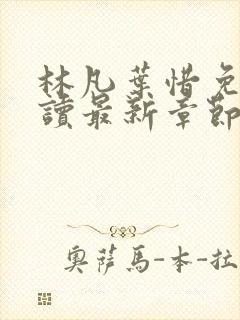 林凡葉惜免
讀最新章節
奧薩馬-本-拉